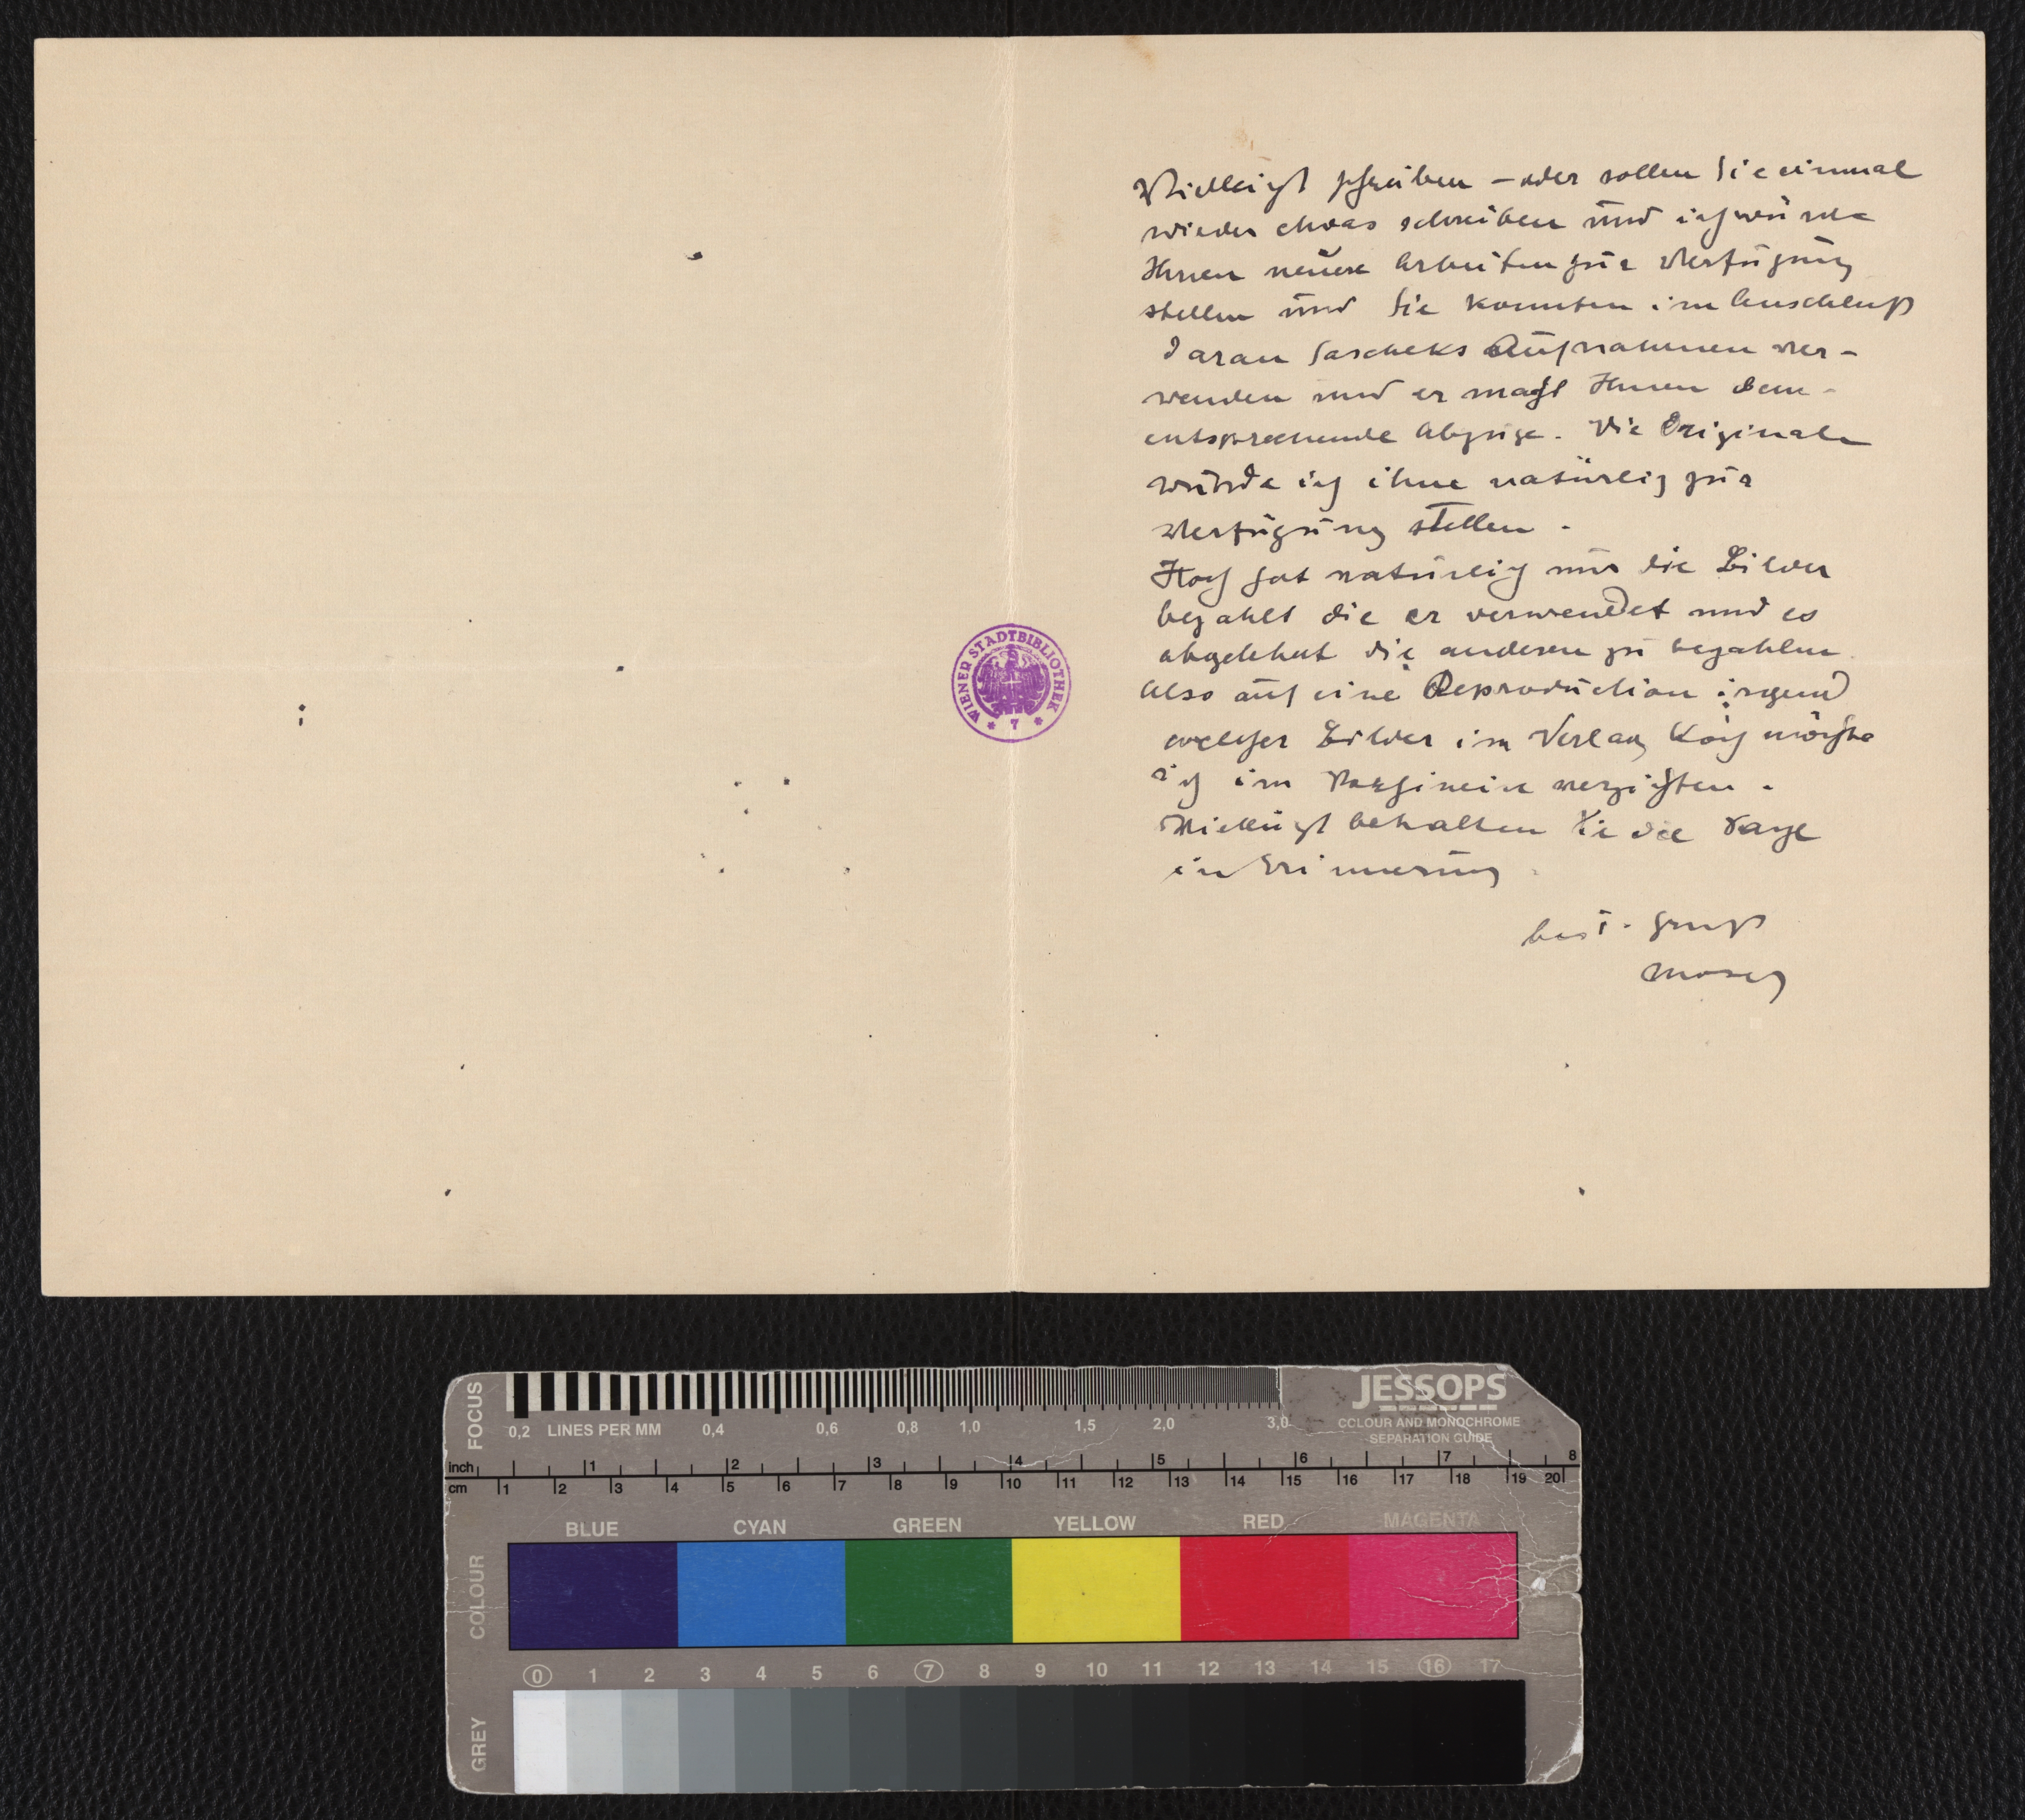 Vielleicht schreiben – oder sollen Sie einmal
wieder etwas schreiben und ich würde
Ihnen neuere Arbeiten zur Verfügung
stellen und Sie konnten im Anschluß
daran Sascheks Aufnahmen ver-
wenden und er macht Ihnen dem-
entsprechende Abzüge. Die Originale
würde ich ihne natürlich zur
Verfügung stellen.
Koch hat natürlich nur die Bilder
bezahlt die er verwendet und es
abgelehnt die anderen zu bezahlen
Also auf eine Reproduction irgend
welcher Bilder im Verlag Koch möchte
ich im verzichten.
Vielleicht behalten Sie die Sache
in Erinnerung
best. Gruß
Moser
WIENER STADTBIBLIOTHEK
* 7 *
FOCUS
0,2 LINES PER MM 0,4 0,6 0,8 1,0 1,5 2,0 3,0
JESSOPS
COLOUR AND MONOCHROME
SEPARATION GUIDE
inch 1 2 3 4 5 6 7 8
cm 1 2 3 4 5 6 7 8 9 10 11 12 13 14 15 16 17 18 19 20
COLOUR
BLUE CYAN GREEN YELLOW RED MAGENTA
0 1 2 3 4 5 6 7 8 9 10 11 12 13 14 15 16 17
GREY